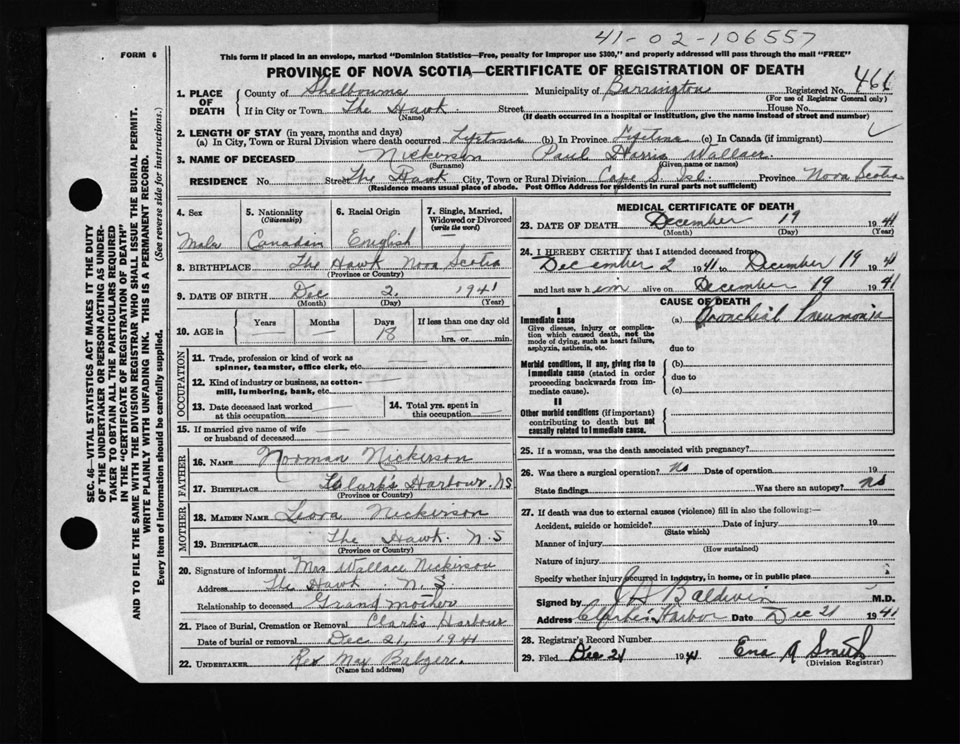 41-02-106557
FORM 6
This form if placed in an envelope, marked "Dominion Statistics—Free, penalty for improper use $300," and properly addressed will pass through the mail "FREE"
PROVINCE OF NOVA SCOTIA—CERTIFICATE OF REGISTRATION OF DEATH
1. PLACE OF DEATH County of Shelbourne Municipality of Barrington Registered No. 466
(For use of Registrar General only)
If in City or Town The Hawk Street House No.
(Name) (If death occurred in a hospital or institution, give the name instead of street and number)
2. LENGTH OF STAY (in years, months and days)
(a) In City, Town or Rural Division where death occurred Lifetime (b) In Province Lifetime (c) In Canada (if immigrant)
3. NAME OF DECEASED Nickerson Paul Harris Wallace
(Surname) (Given name or names)
RESIDENCE No. Street The Hawk City, Town or Rural Division Cape S. Isl. Province Nova Scotia
(Residence means usual place of abode. Post Office Address for residents in rural parts not sufficient)
4. Sex 5. Nationality (Citizenship) 6. Racial Origin 7. Single, Married, Widowed or Divorced (write the word)
Male Canadian English —
8. BIRTHPLACE The Hawk Nova Scotia
(Province or Country)
9. DATE OF BIRTH Dec 2. 1941
(Month) (Day) (Year)
10. AGE in Years Months Days If less than one day old
— — 18 hrs. or min.
OCCUPATION
11. Trade, profession or kind of work as spinner, teamster, office clerk, etc. —
12. Kind of industry or business, as cotton-mill, lumbering, bank, etc. —
13. Date deceased last worked at this occupation — 14. Total yrs. spent in this occupation —
15. If married give name of wife or husband of deceased —
FATHER
16. NAME Norman Nickerson
17. BIRTHPLACE Clarks Harbour. N.S
(Province or Country)
MOTHER
18. MAIDEN NAME Leora Nickerson
19. BIRTHPLACE The Hawk N.S
(Province or Country)
20. Signature of informant Mrs Wallace Nickerson
Address The Hawk N.S.
Relationship to deceased Grand mother
21. Place of Burial, Cremation or Removal Clarks Harbour
Date of burial or removal Dec 21, 1941
22. UNDERTAKER Rev Max Balzer.
(Name and address)
MEDICAL CERTIFICATE OF DEATH
23. DATE OF DEATH December 19 1941
(Month) (Day) (Year)
24. I HEREBY CERTIFY that I attended deceased from
December 2 1941 to December 19 1941
and last saw him alive on December 19 1941
CAUSE OF DEATH
I
Immediate cause (a) Bronchial Pneumonia
Give disease, injury or complication which caused death, not the mode of dying, such as heart failure, asphyxia, asthenia, etc.
due to
Morbid conditions, if any, giving rise to Immediate cause (stated in order proceeding backwards from immediate cause).
(b)
due to
(c)
II
Other morbid conditions (if important) contributing to death but not causally related to immediate cause.
25. If a woman, was the death associated with pregnancy?
26. Was there a surgical operation? No Date of operation 19
State findings Was there an autopsy? no
27. If death was due to external causes (violence) fill in also the following:—
Accident, suicide or homicide? Date of injury 19
(State which)
Manner of injury
(How sustained)
Nature of injury
Specify whether injury occurred in industry, in home, or in public place
Signed by Baldwin M.D.
Address Clarkes Harbor Date Dec 21 1941
28. Registrar's Record Number
29. Filed Dec 21 1941 Ena A Smith
(Division Registrar)
SEC. 46—VITAL STATISTICS ACT MAKES IT THE DUTY
OF THE UNDERTAKER OR PERSON ACTING AS UNDER-
TAKER TO OBTAIN ALL THE PARTICULARS REQUIRED
IN THE "CERTIFICATE OF REGISTRATION OF DEATH"
AND TO FILE THE SAME WITH THE DIVISION REGISTRAR WHO SHALL ISSUE THE BURIAL PERMIT.
WRITE PLAINLY WITH UNFADING INK. THIS IS A PERMANENT RECORD.
Every item of information should be carefully supplied. (See reverse side for instructions.)